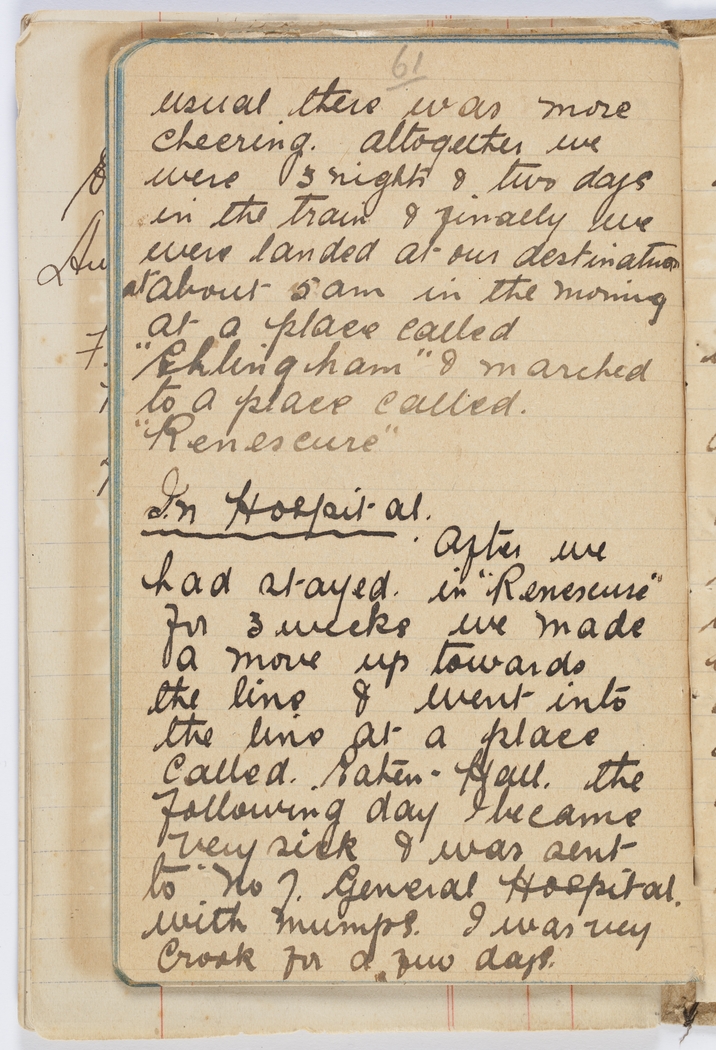 61
usual there was more
cheering. altogether we
were 3 nights & two days
in the train & finally we
were landed at our destination
at about 5 am in the morning
at a place called
"Ehlingham" & marched
to a place called.
"Renescure"
In Hospital.
After we
had stayed. in "Renescure"
for 3 weeks we made
a move up towards
the line & went into
the line at a place
called. Eaten-Hall. the
following day I became
very sick & was sent
to No 7. General Hospital.
with mumps. I was very
crook for a few days.